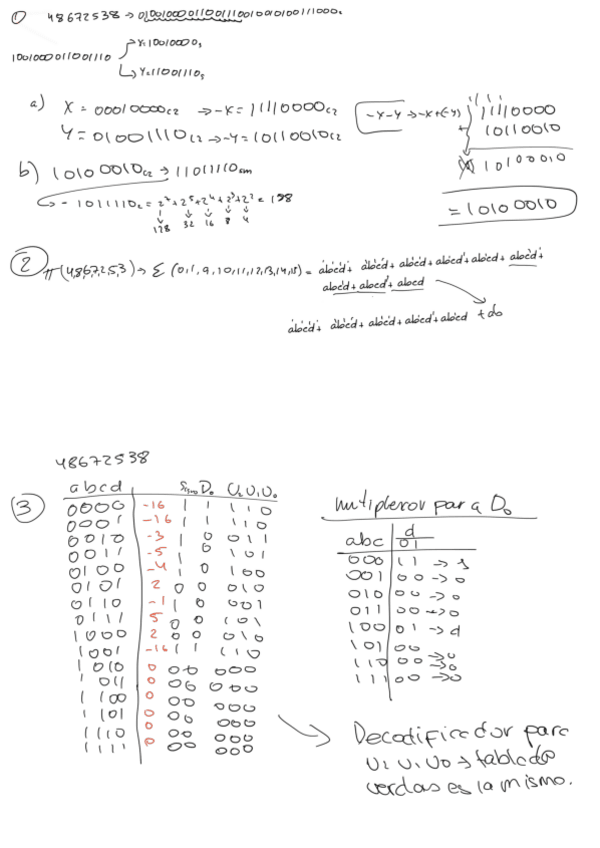 ① 48672538 → 010010000110011100100101 00111000₂
1001000011001110
x=10010000₂
Y=11001110₂
a) X = 00010000c2 → -X = 11110000c2
Y = 01001110c2 → -Y = 10110010c2
-X-Y → -X+(-Y)
11110000
+ 10110010
10100010
= 10100010
b) 10100010c2 → 11011110sm
- 1011110₂ = 2⁷+2⁵+2⁴+2³+2² = 188
128 32 16 8 4
② π(4,8,6,7,2,5,3) → Σ (0,1,9,10,11,12,13,14,15) =
+ do
48672538
③
abcd Signo D₀ U₂U₁U₀
0000 -16 1 1 110
0001 -16 1 1 110
0010 -3 1 0 011
0011 -5 1 0 101
0100 -4 1 0 100
0101 2 0 0 010
0110 -1 1 0 001
0111 5 0 0 101
1000 2 0 0 010
1001 -16 1 1 110
1010 0 00 000
1011 0 00 000
1100 0 00 000
1101 0 00 000
1110 0 00 000
1111 0 00 000
Multiplexor para D₀
d
abc 01
000 11 → 1
001 00 → 0
010 00 → 0
011 00 → 0
100 01 → d
101 00 → 0
110 00 → 0
111 00 → 0
Decodificador para
U₂ U₁ U₀ → tabla de
verdas es la mismo.